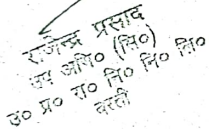 राजेन्द्र प्रसाद
उप अभि० (सि०)
उ० प्र० रा० नि० नि० लि०
बस्ती